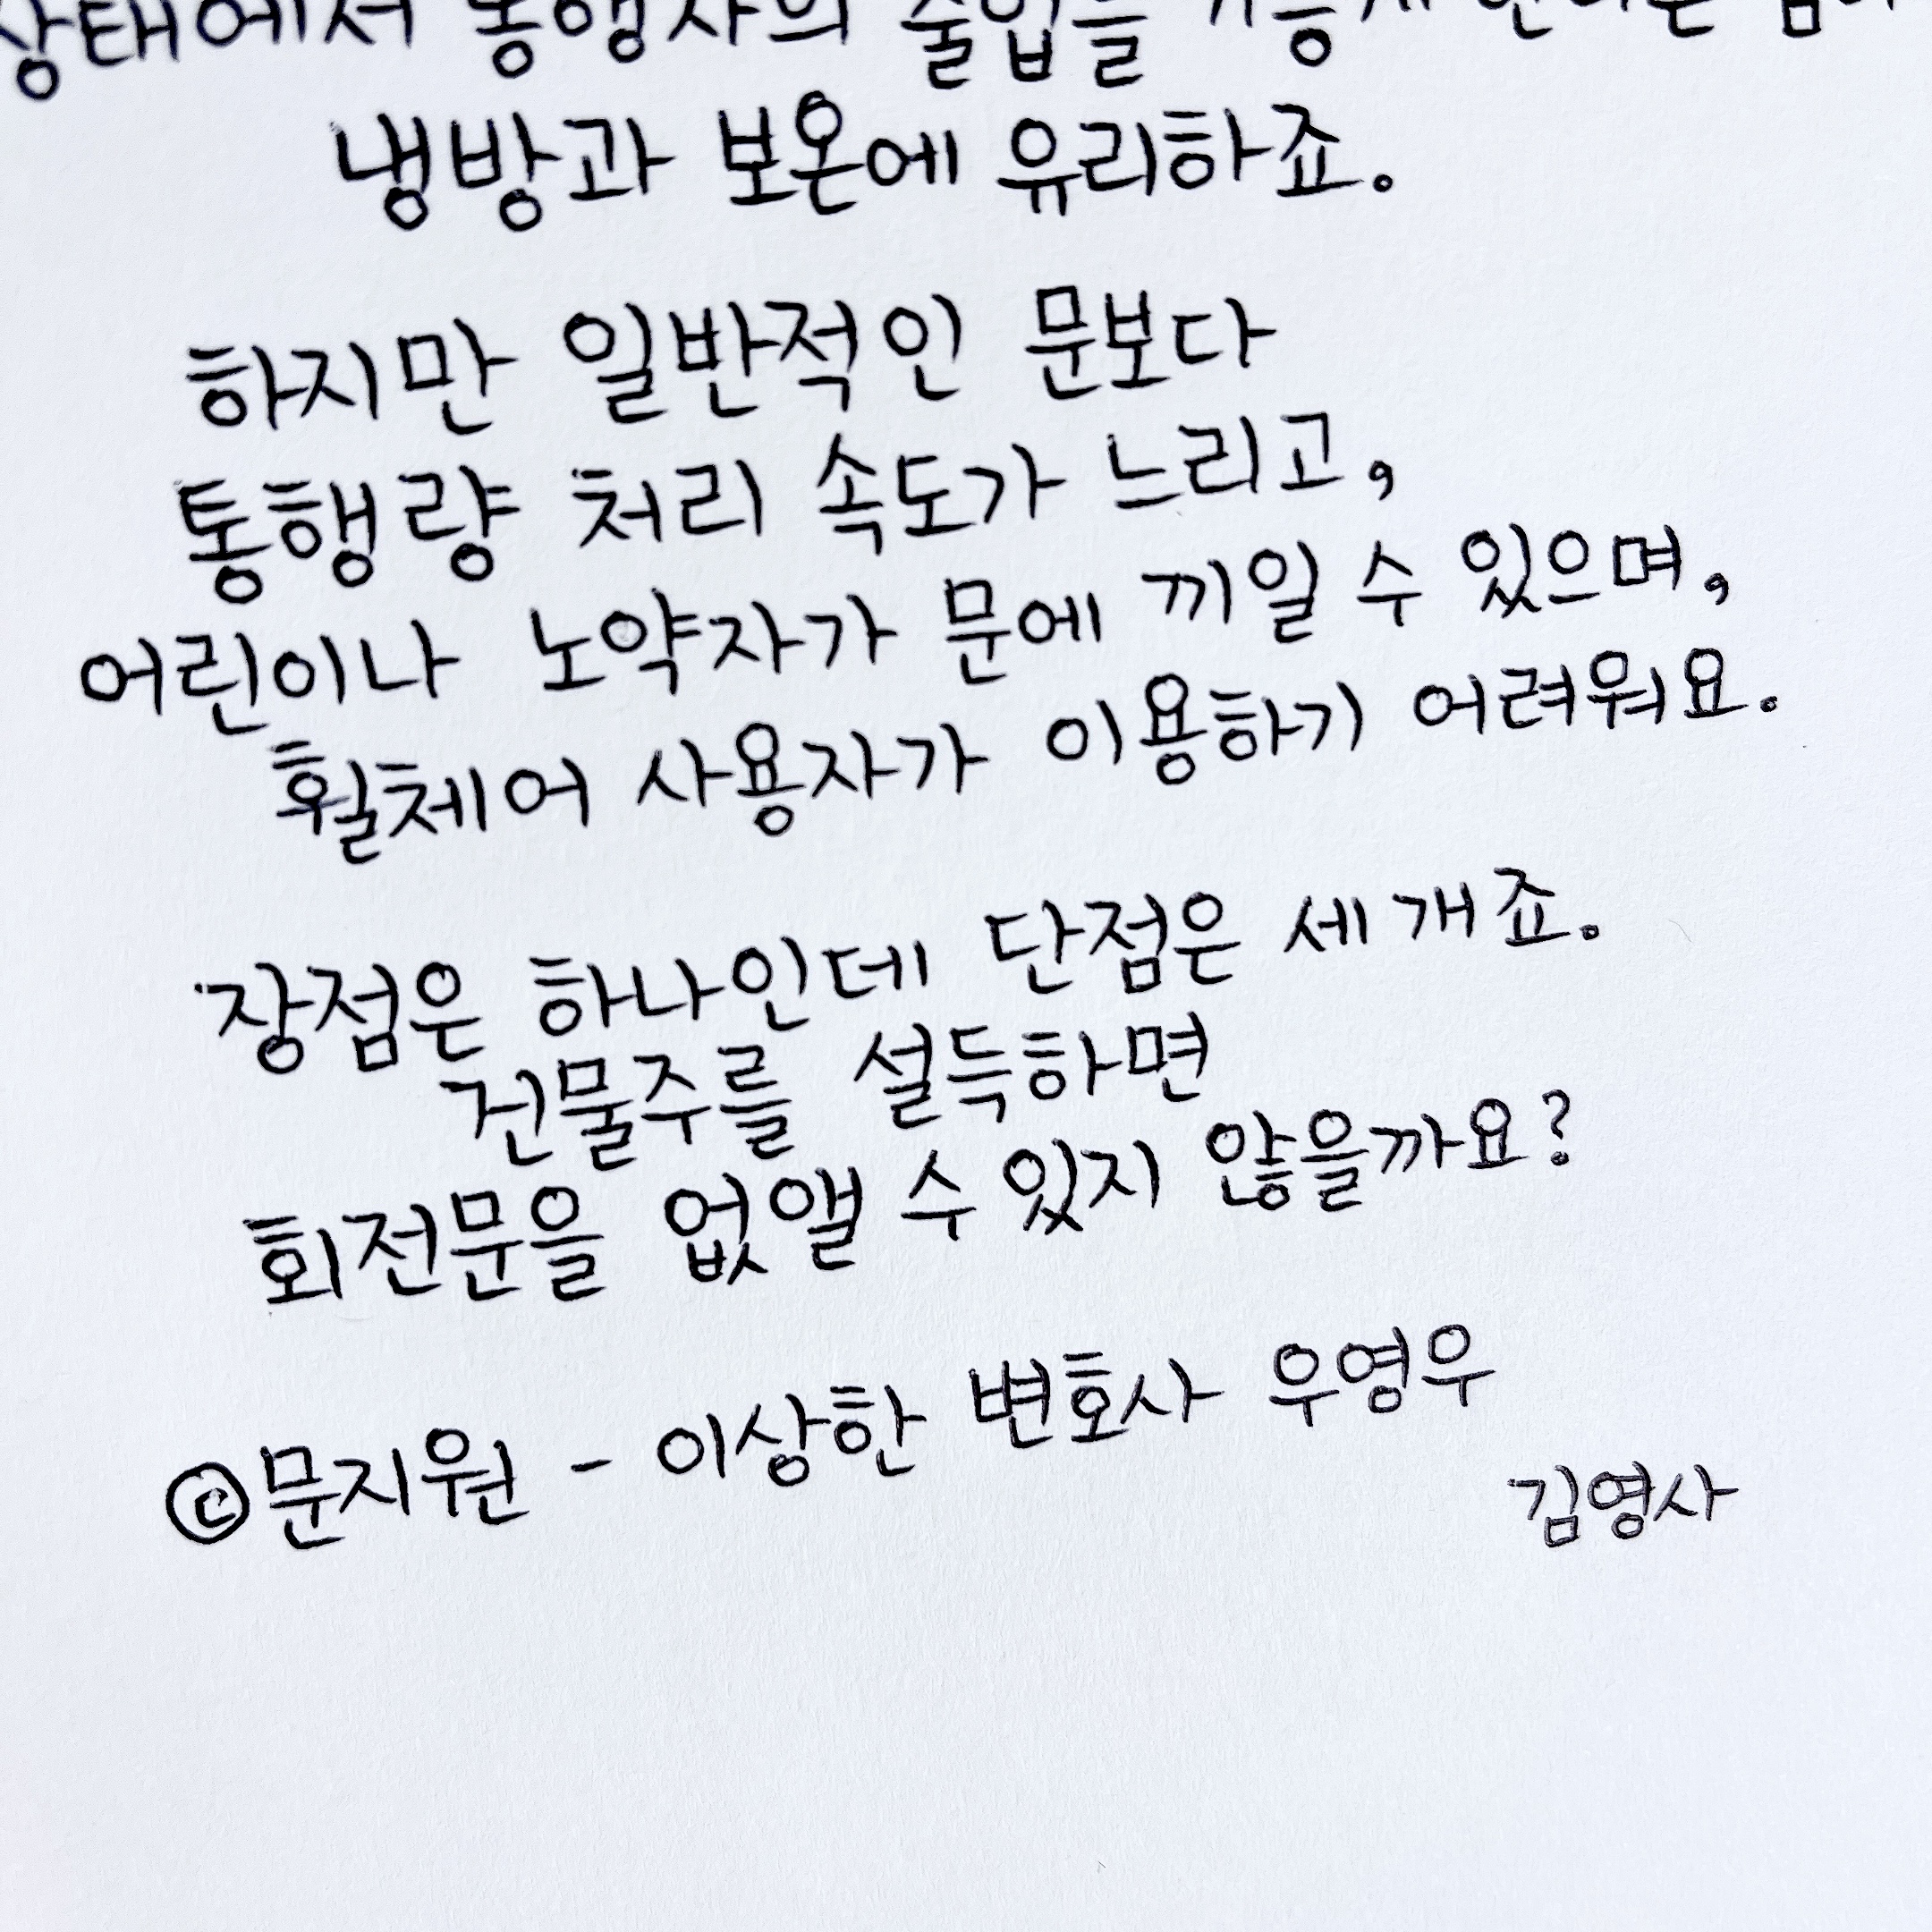 상태에서 통행자의 출입을 가능케 한다는 점에
냉방과 보온에 유리하죠.
하지만 일반적인 문보다
통행량 처리 속도가 느리고,
어린이나 노약자가 문에 끼일 수 있으며,
휠체어 사용자가 이용하기 어려워요.
장점은 하나인데 단점은 세 개죠.
건물주를 설득하면
회전문을 없앨 수 있지 않을까요?
©문지원 - 이상한 변호사 우영우
김영사